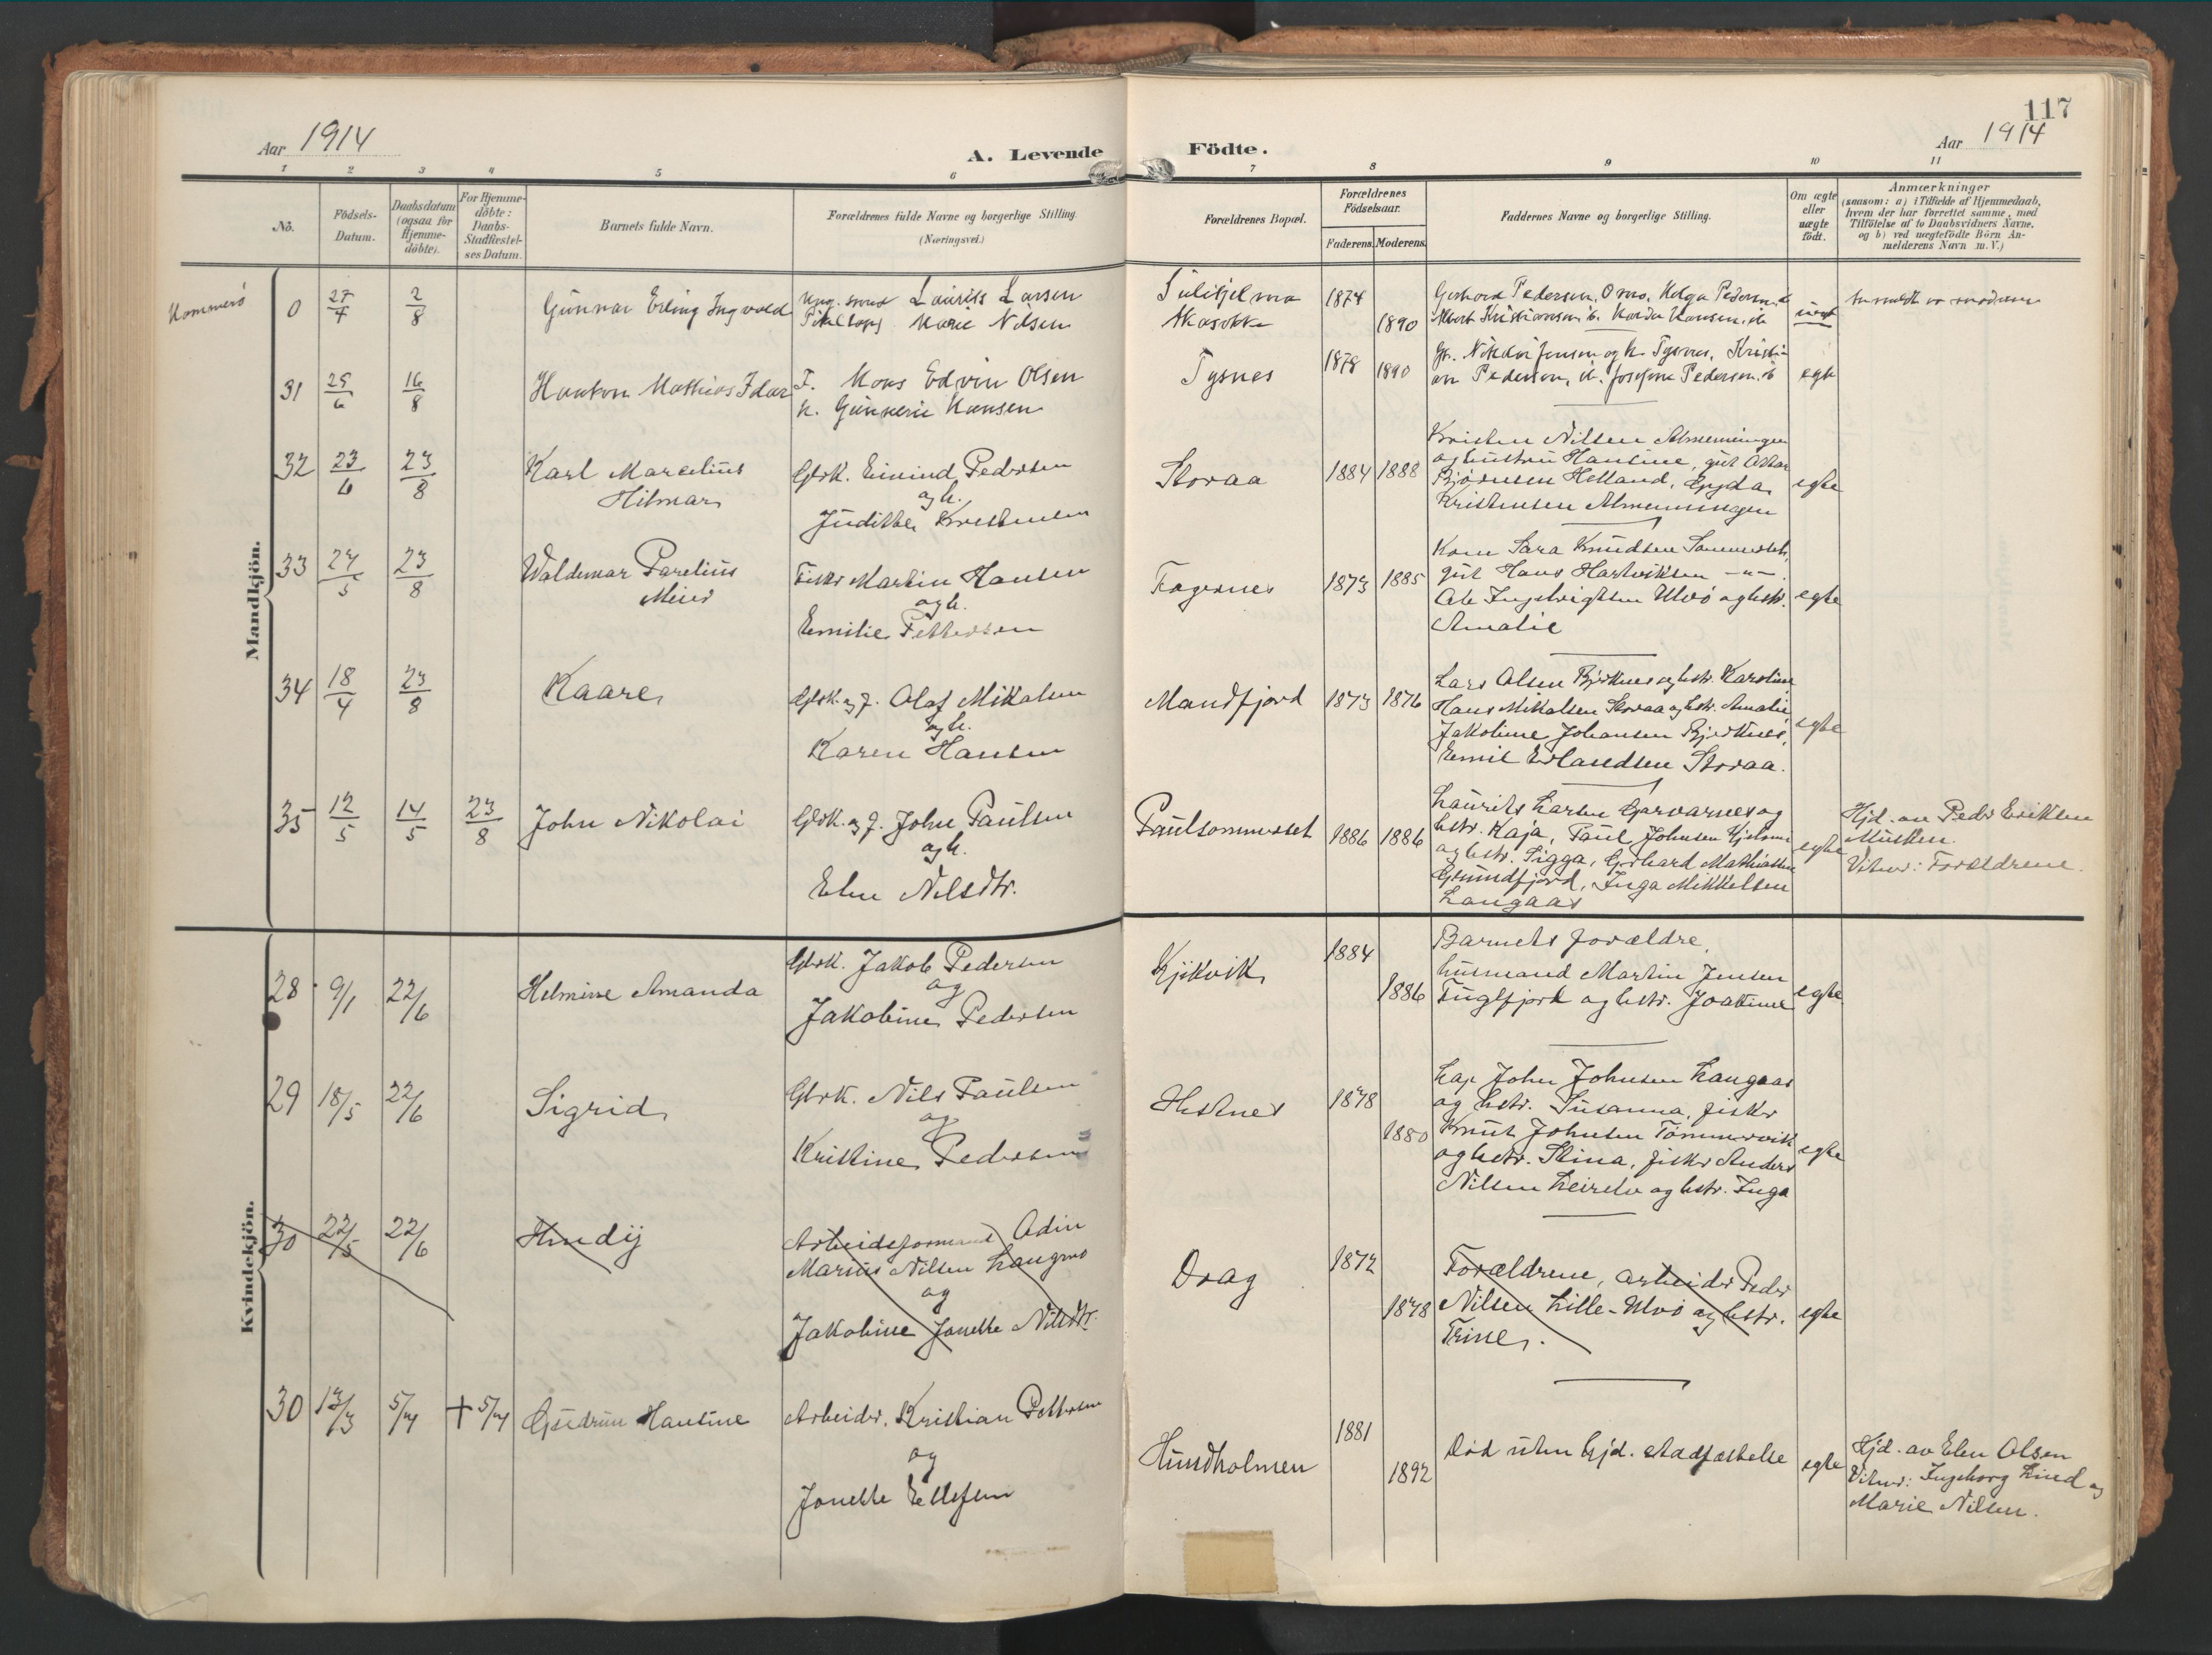 117
Aar 1914
A. Levende Födte.
Aar 1914
1 2 3 4 5 6 7 8 9 10 11
No.
Födsels-
Datum.
Daabsdatum
(ogsaa for
Hjemme-
döbte).
For Hjemme-
döbte:
Daabs-
Stadfæstel-
ses Datum.
Barnets fulde Navn.
Forældrenes fulde Navne og borgerlige Stilling.
(Næringsvei.)
Forældrenes Bopæl.
Forældrenes
Födselsaar.
Faderens. Moderens.
Faddernes Navne og borgerlige Stilling.
Om ægte
eller
uægte
födt.
Anmærkninger
(saasom: a) i Tilfælde af Hjemmedaab,
hvem der har forrettet samme, med
Tilföielse af to Daabsvidners Navne,
og b) ved uægtefödte Börn An-
melderens Navn m. V.)
Mandkjön.
0 27/7 2/8
Gunnar Erling Ingvald
Ung. Laurits Larsen
Marie Nilsen
Sulitjelma
1874
1890
Gerhard Pedersen, Helga Pedersen
31 25/6 16/8
Haakon Mathias Idar
F. Mons Edvin Olsen
h. Gunnerie Hansen
Tysnes
1878 1890
Kristi-
an Pedersen, Josefine Pedersen
egte
32 23/6 23/8
Karl Marcelius
Hilmar
Gbrk. Eimind Pedersen
og h.
Judithe Kristensen
Storaa
1884 1888
Kristen Nilsen Almenningen
og hustru Hansine, gut Ottar
Björnsen Helland, Gyda
Kristensen Almenningen
egte
33 24/5 23/8
Waldemar Parelius
Meier
Fisker Martin Hansen
og h.
Emilie Pettersen
Fagernes
1873 1885
Kone Sara Knudsen Sommerset,
gut Hans Hartviksen -"-.
Ole Ingebrigtsen Ulvö og hstr.
Amalie
egte
34 18/4 23/8
Kaare
Gbrk. og f. Olaf Mikalsen
og h.
Karen Hansen
Mandfjord
1873 1876
Lars Olsen Bjerknes og hstr. Karoline,
Hans Mikalsen Storaa og hstr. Amalie,
Jakobine Johansen Bjerknes,
Emil Erlandsen Storaa.
egte
35 12/5 14/5 23/8
John Nikolai
Gbrk. og f. John Paulsen
og h.
Elen Nilsdtr.
Paulsommerset
1886 1886
Laurits Larsen Gjervarnes og
hstr. Kaja, Paul Johnsen
og hstr. Sigga, Gerhard Mathiassen
Grundfjord, Inga Mikkelsen
Langaas
egte
Hjd. av Peder Eriksen
Musken.
Vitner: Forældrene.
Kvindekjön.
28 9/1 22/6
Helmine Amanda
Gbrk. Jakob Pedersen
og
Jakobine Pedersen
Kjikvik
1884
1886
Barnets forældre,
husmand Martin Jensen
Fuglfjord og hstr. Joakime
egte
29 18/5 22/6
Sigrid
Gbrk. Nils Paulsen
og
Kristine Pedersen
Hestnes
1878
1880
Lap John Johnsen Langaas
og hstr. Susanna, fisker
Knut Johnsen Tömmervik
og hstr. Stina, fisker Anders
Nilsen og hstr. Inga
egte
30 22/5 22/6
Arbeidsformand Odin
Marius Nilsen Langmo
og
Jakobine Janette Nilsdtr.
Drag
1872
1878
Forældrene, arbeider Peder
Nilsen Lille-Ulvö og hstr.
Trine.
egte
30 13/3 5/4 + 5/4
Gudrun Hansine
Arbeider Kristian Pettersen
og
Janette Ellefsen
Hundholmen
1881
1892
Död uten hjd. stadfæstelse
egte
Hjd. av Elen Olsen
Vitner: Ingeborg Lind og
Marie Nilsen.